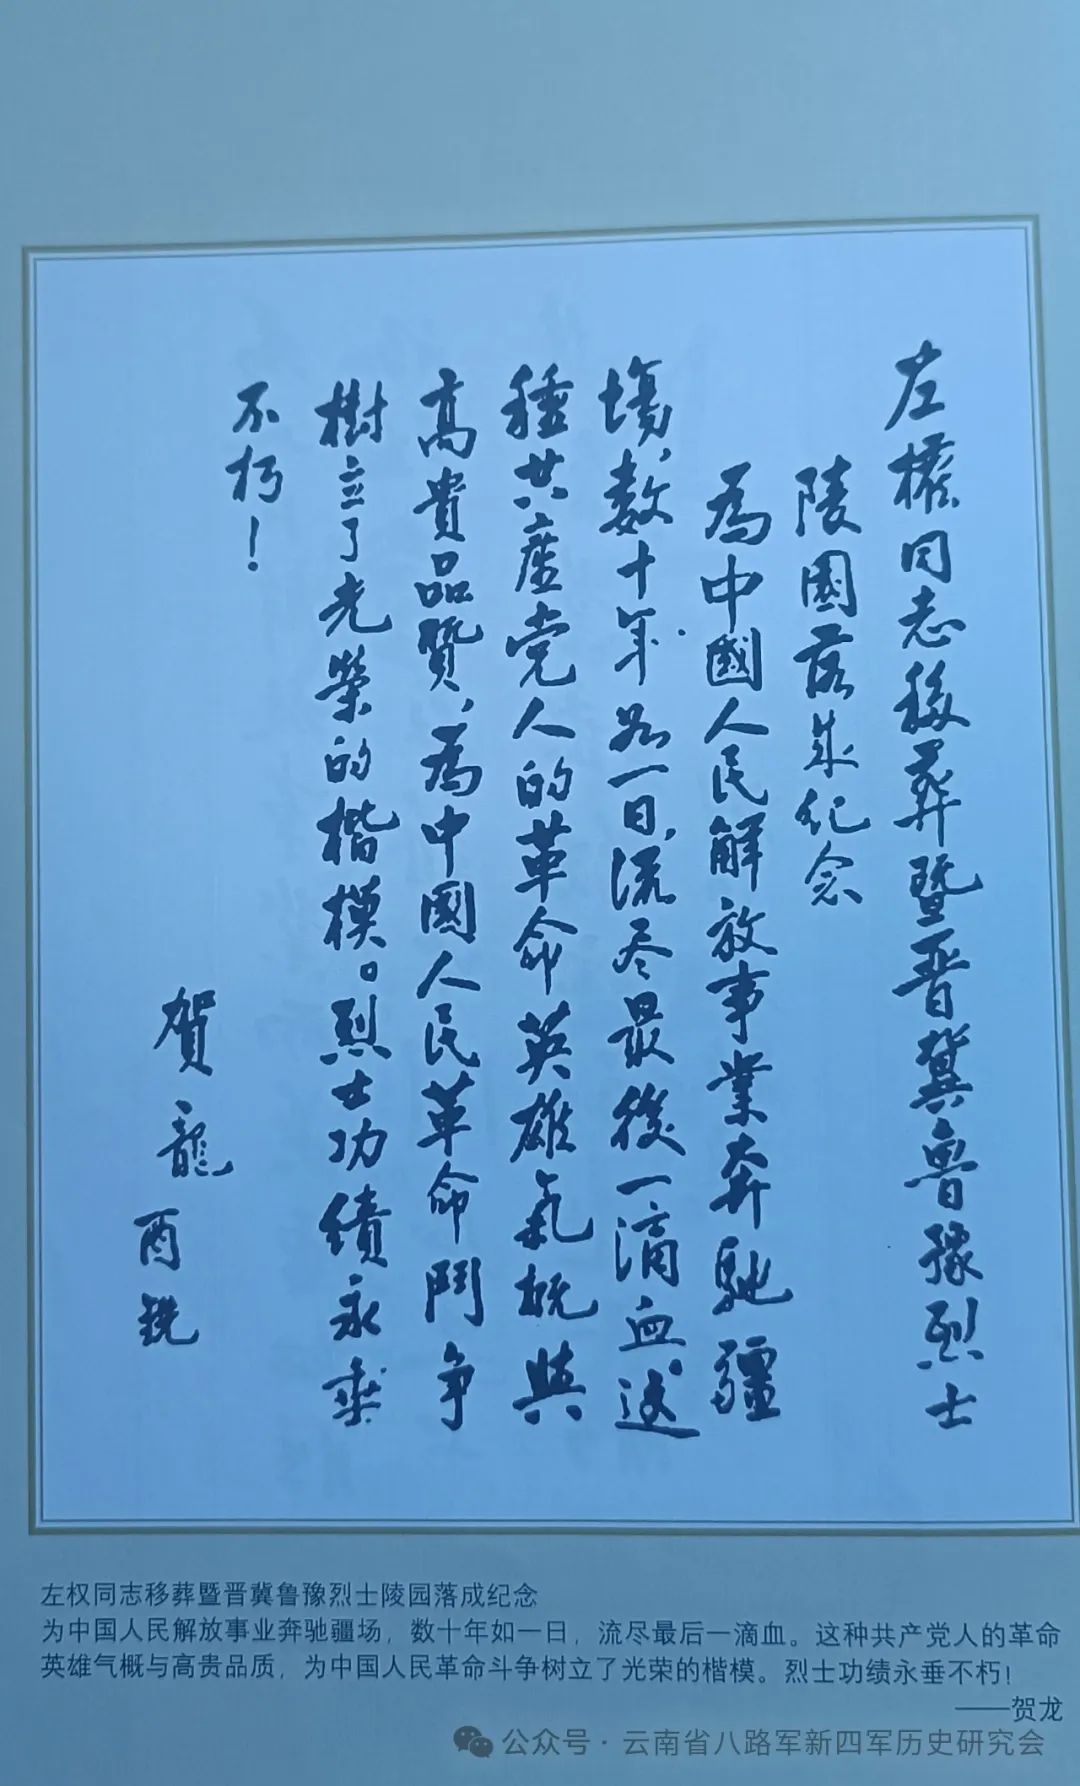 左權同志移葬暨晋冀魯豫烈士
陵園落成纪念
為中國人民解放事業奔馳疆
場，数十年如一日，流尽最後一滴血。这
種共產党人的革命英雄氣概與
高貴品質，為中國人民革命鬥争
樹立了光榮的楷模。烈士功績永垂
不朽！
賀龍
左权同志移葬暨晋冀鲁豫烈士陵园落成纪念
为中国人民解放事业奔驰疆场，数十年如一日，流尽最后一滴血。这种共产党人的革命
英雄气概与高贵品质，为中国人民革命斗争树立了光荣的楷模。烈士功绩永垂不朽！
——贺龙
公众号·云南省八路军新四军历史研究会